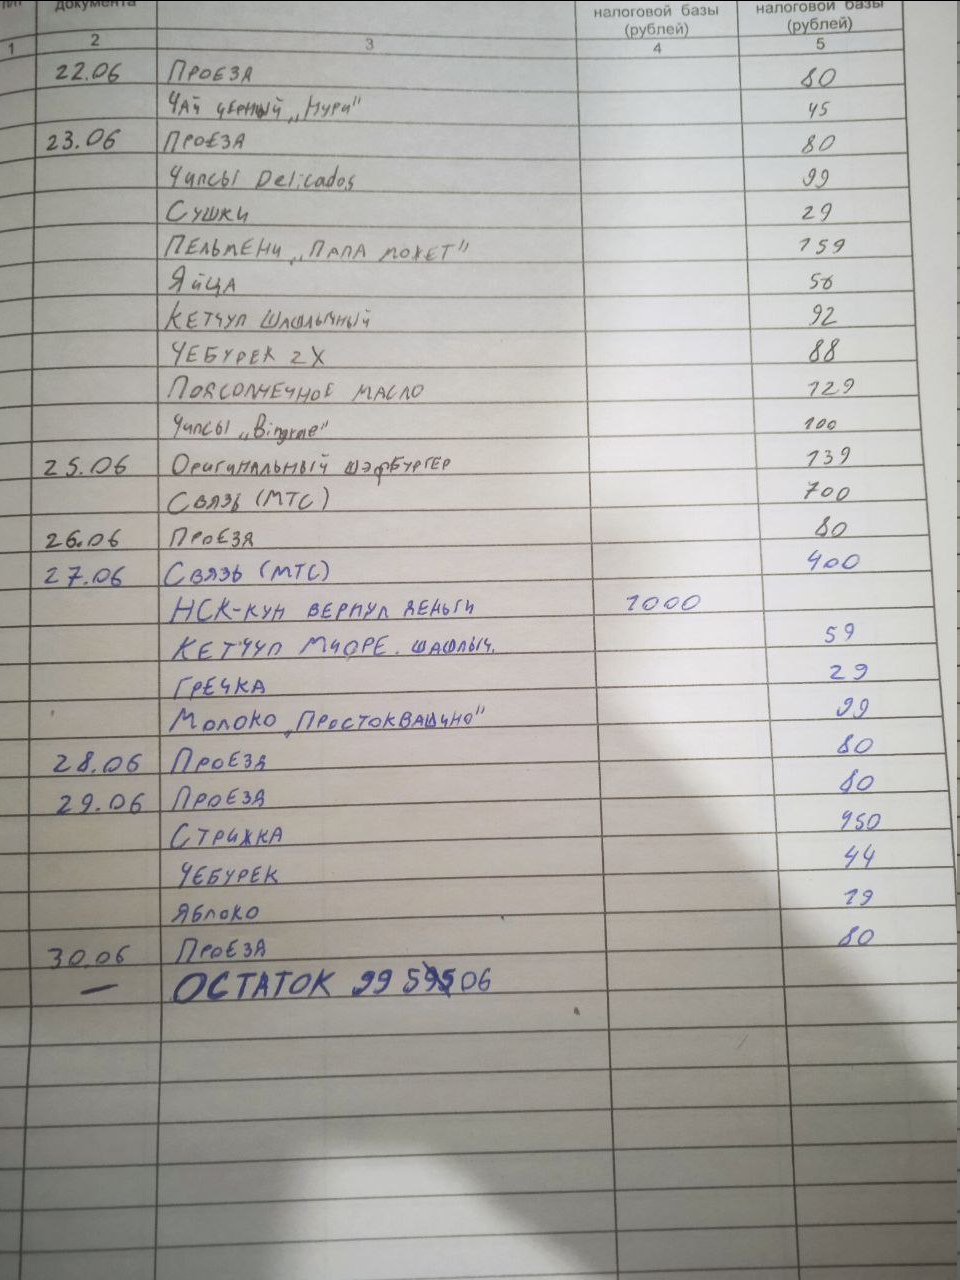 п/п документа налоговой базы (рублей) налоговой базы (рублей)
1 2 3 4 5
22.06 ПРОЕЗД 80
ЧАЙ ЧЕРНЫЙ „Нури" 45
23.06 ПРОЕЗД 80
Чипсы Delicados 99
СУШКИ 29
ПЕЛЬМЕНИ „ПАПА МОЖЕТ" 159
ЯЙЦА 56
КЕТЧУП ШАШЛЫЧНЫЙ 92
ЧЕБУРЕК 2X 88
ПОДСОЛНЕЧНОЕ МАСЛО 129
Чипсы „Bingrae" 100
25.06 ОРИГИНАЛЬНЫЙ ШЭФБУРГЕР 139
СВЯЗЬ (МТС) 700
26.06 ПРОЕЗД 80
27.06 СВЯЗЬ (МТС) 400
НСК-КУН ВЕРНУЛ ДЕНЬГИ 1000
КЕТЧУП МЧОРЕ. ШАШЛЫЧ. 59
ГРЕЧКА 29
МОЛОКО „ПРОСТОКВАШИНО" 99
28.06 ПРОЕЗД 80
29.06 ПРОЕЗД 80
СТРИЖКА 950
ЧЕБУРЕК 44
ЯБЛОКО 19
30.06 ПРОЕЗД 80
— ОСТАТОК 99 506